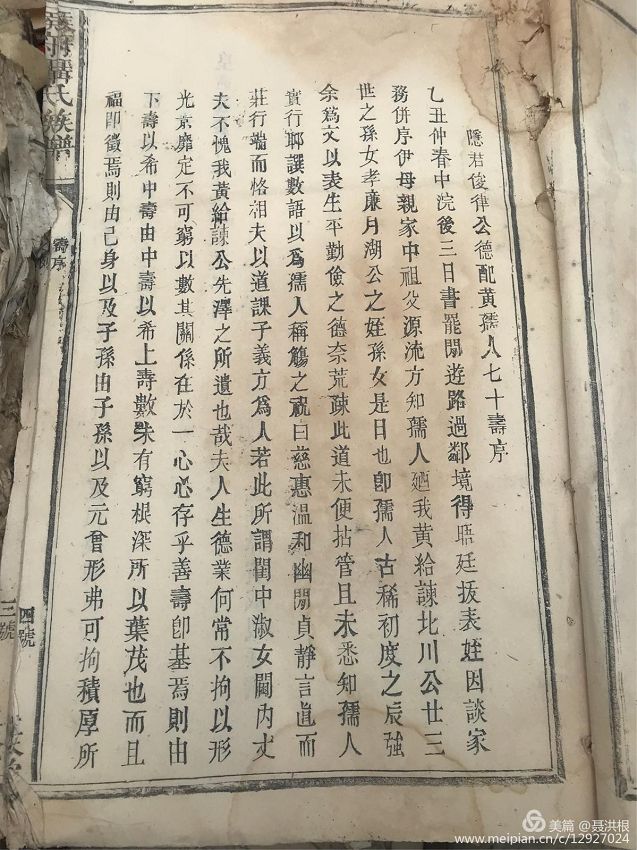 隱君俊律公德配黃孺人七十壽序
乙丑仲春中浣後三日書罷閒遊路過鄰境得晤廷拔表姪因談家
務併序伊母親家中祖父源流方知孺人廼我黃給諫北川公廿三
世之孫女孝廉月湖公之姪孫女是日也卽孺人古稀初度之辰強
余爲文以表生平勤儉之德奈荒疎此道未便拈管且未悉知孺人
實行耶譔數語以爲孺人稱觴之祝曰慈惠溫和幽閒貞靜言眞而
莊行端而恪相夫以道課子義方爲人若此所謂閨中淑女閫內丈
夫不愧我黃給諫公先澤之所遺也哉夫人生德業何常不拘以形
光景靡定不可窮以數其關係在於一心心存乎善壽卽基焉則由
下壽以希中壽由中壽以希上壽數未有窮根深所以葉茂也而且
福卽徵焉則由己身以及子孫由子孫以及元曾形弗可拘積厚所
氏族譜
壽序
三號
四號
美篇 @聶洪根
www.meipian.cn/c/12927024